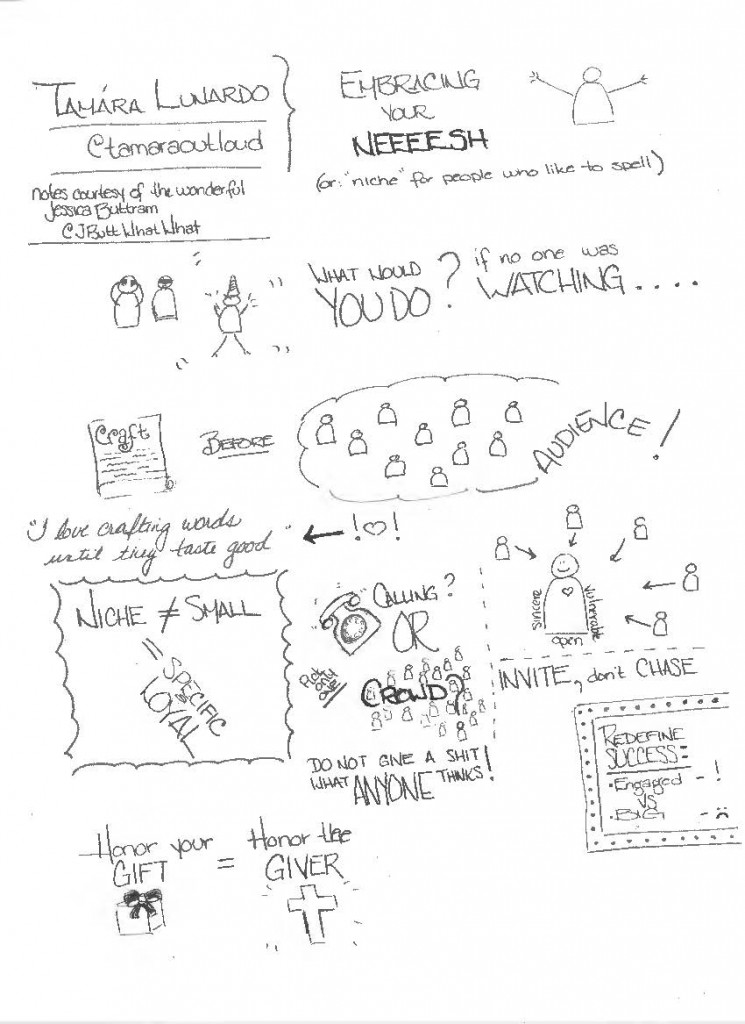 TAMÁRA LUNARDO
@tamaraoutloud
notes courtesy of the wonderful
Jessica Buttram
@JButtWhatWhat
EMBRACING
YOUR
NEEEESH
(or: "niche" for people who like to spell)
WHAT WOULD
YOU DO?
if no one was
WATCHING....
Craft
BEFORE
AUDIENCE!
"I love crafting words
until they taste good"
!♡!
NICHE ≠ SMALL
= SPECIFIC
LOYAL
CALLING?
OR
Pick
only
one!
CROWD?
DO NOT GIVE A SHIT
WHAT ANYONE THINKS!
sincere
open
vulnerable
INVITE, don't CHASE
REDEFINE
SUCCESS:
• Engaged - !
VS
• BIG - :(
Honor your
GIFT
=
Honor the
GIVER